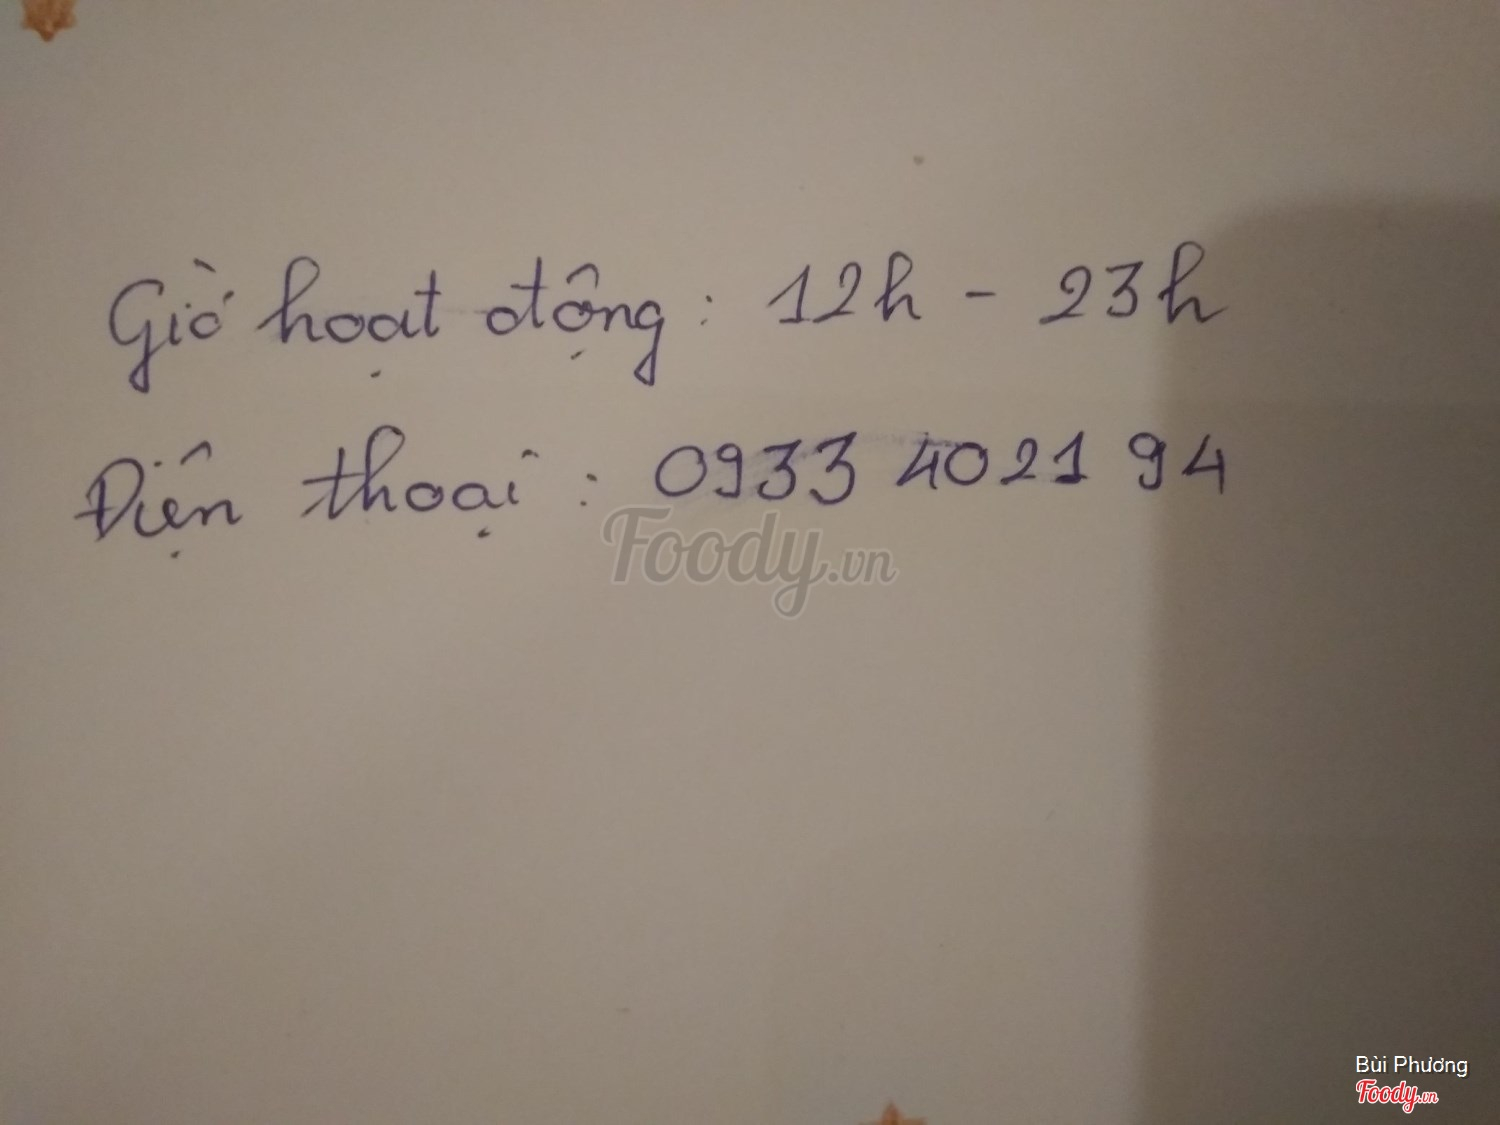 Giờ hoạt động: 12h - 23h
Điện thoại: 0933 4021 94
Foody.vn
Bùi Phương
Foody.vn